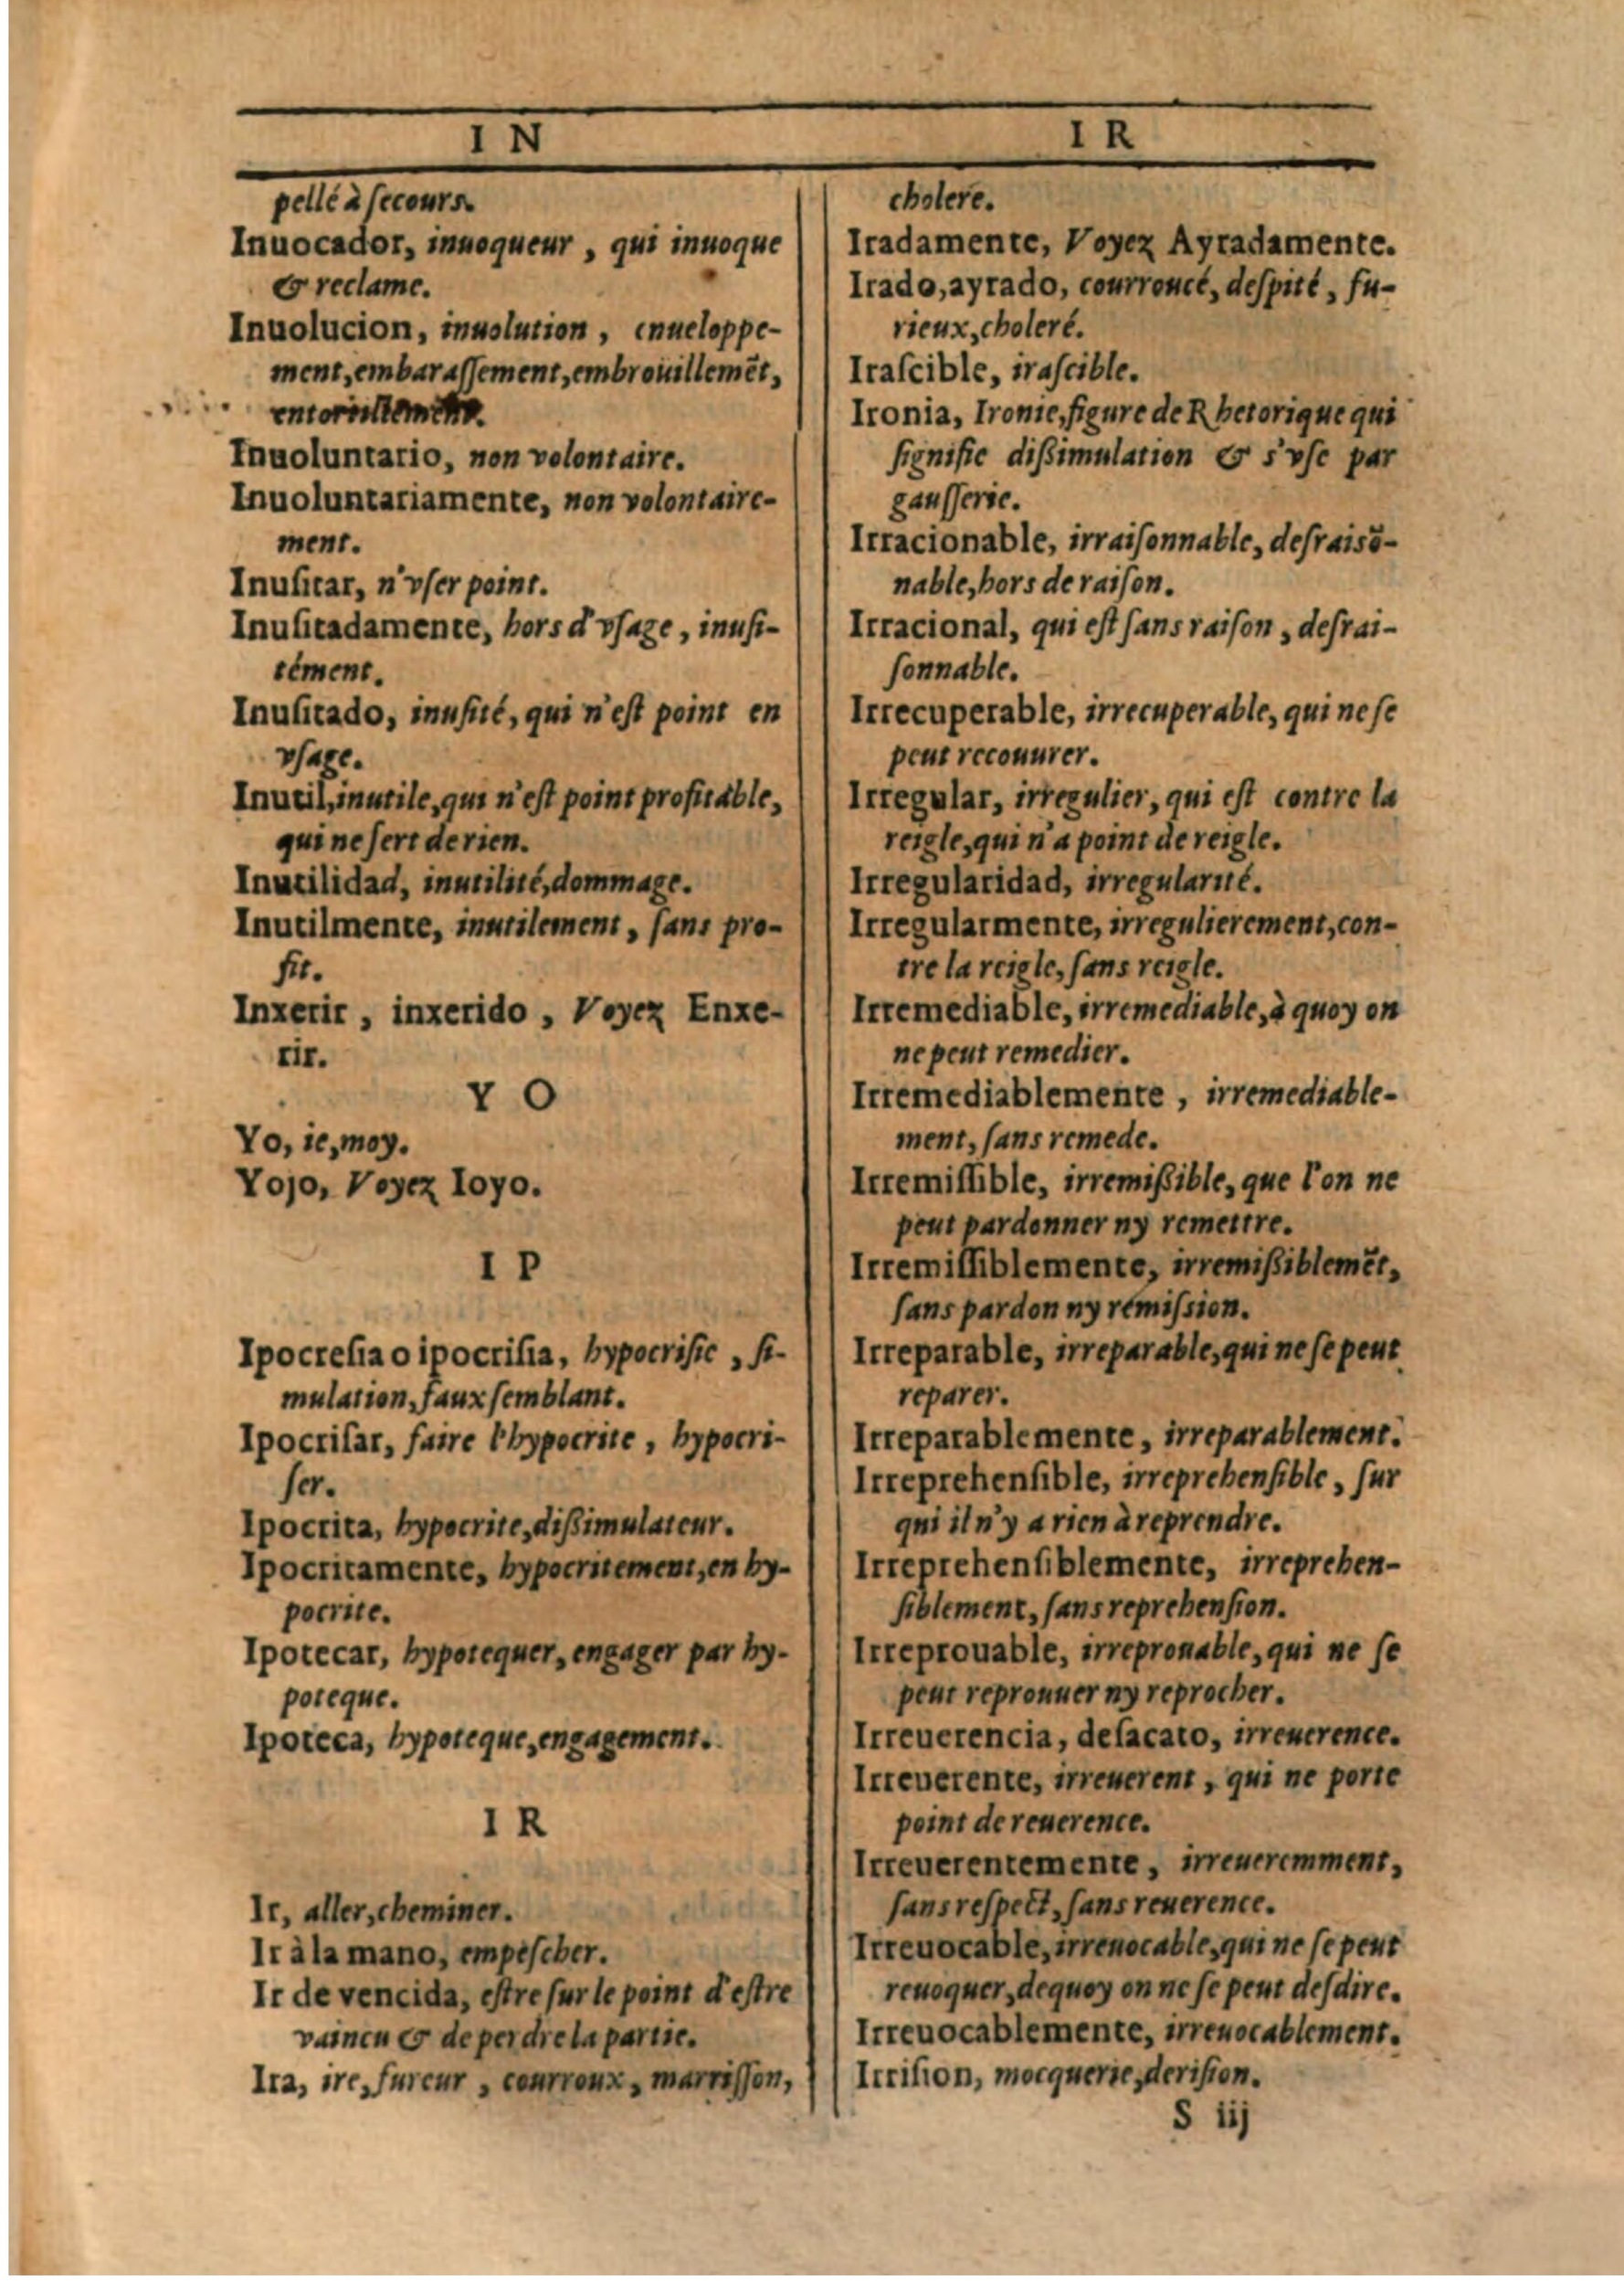 I N
pellé à ſecours.
Inuocador, inuoqueur, qui inuoque
& reclame.
Inuolucion, inuolution, enueloppe-
ment, embaraſſement, embrouillemẽt,
Inuoluntario, non volontaire.
Inuoluntariamente, non volontaire-
ment.
Inuſitar, n'vſer point.
Inuſitadamente, hors d'vſage, inuſi-
tément.
Inuſitado, inuſité, qui n'eſt point en
vſage.
Inutil, inutile, qui n'eſt point profitable,
qui ne ſert de rien.
Inutilidad, inutilité, dommage.
Inutilmente, inutilement, ſans pro-
fit.
Inxerir, inxerido, Voyez Enxe-
rir.
Y O
Yo, ie, moy.
Yojo, Voyez Ioyo.
I P
Ipocreſia o ipocriſia, hypocriſie, ſi-
mulation, faux ſemblant.
Ipocriſar, faire l'hypocrite, hypocri-
ſer.
Ipocrita, hypocrite, diſſimulateur.
Ipocritamente, hypocritement, en hy-
pocrite.
Ipotecar, hypotequer, engager par hy-
poteque.
Ipoteca, hypoteque, engagement.
I R
Ir, aller, cheminer.
Ir à la mano, empeſcher.
Ir de vencida, eſtre ſur le point d'eſtre
vaincu & de perdre la partie.
Ira, ire, fureur, courroux, marriſſon,
I R
cholere.
Iradamente, Voyez Ayradamente.
Irado, ayrado, courroucé, deſpité, fu-
rieux, choleré.
Iraſcible, iraſcible.
Ironia, Ironie, figure de Rhetorique qui
ſignifie diſſimulation & s'vſe par
gauſſerie.
Irracionable, irraiſonnable, deſraisõ-
nable, hors de raiſon.
Irracional, qui eſt ſans raiſon, deſrai-
ſonnable.
Irrecuperable, irrecuperable, qui ne ſe
peut recouurer.
Irregular, irregulier, qui eſt contre la
reigle, qui n'a point de reigle.
Irregularidad, irregularité.
Irregularmente, irregulierement, con-
tre la reigle, ſans reigle.
Irremediable, irremediable, à quoy on
ne peut remedier.
Irremediablemente, irremediable-
ment, ſans remede.
Irremiſſible, irremiſſible, que l'on ne
peut pardonner ny remettre.
Irremiſſiblemente, irremiſſiblemẽt,
ſans pardon ny remiſsion.
Irreparable, irreparable, qui ne ſe peut
reparer.
Irreparablemente, irreparablement.
Irreprehenſible, irreprehenſible, ſur
qui il n'y a rien à reprendre.
Irreprehenſiblemente, irreprehen-
ſiblement, ſans reprehenſion.
Irreprouable, irreprouable, qui ne ſe
peut reprouuer ny reprocher.
Irreuerencia, deſacato, irreuerence.
Irreuerente, irreuerent, qui ne porte
point de reuerence.
Irreuerentemente, irreueremment,
ſans reſpect, ſans reuerence.
Irreuocable, irreuocable, qui ne ſe peut
reuoquer, dequoy on ne ſe peut deſdire.
Irreuocablemente, irreuocablement.
Irriſion, mocquerie, deriſion.
S iij